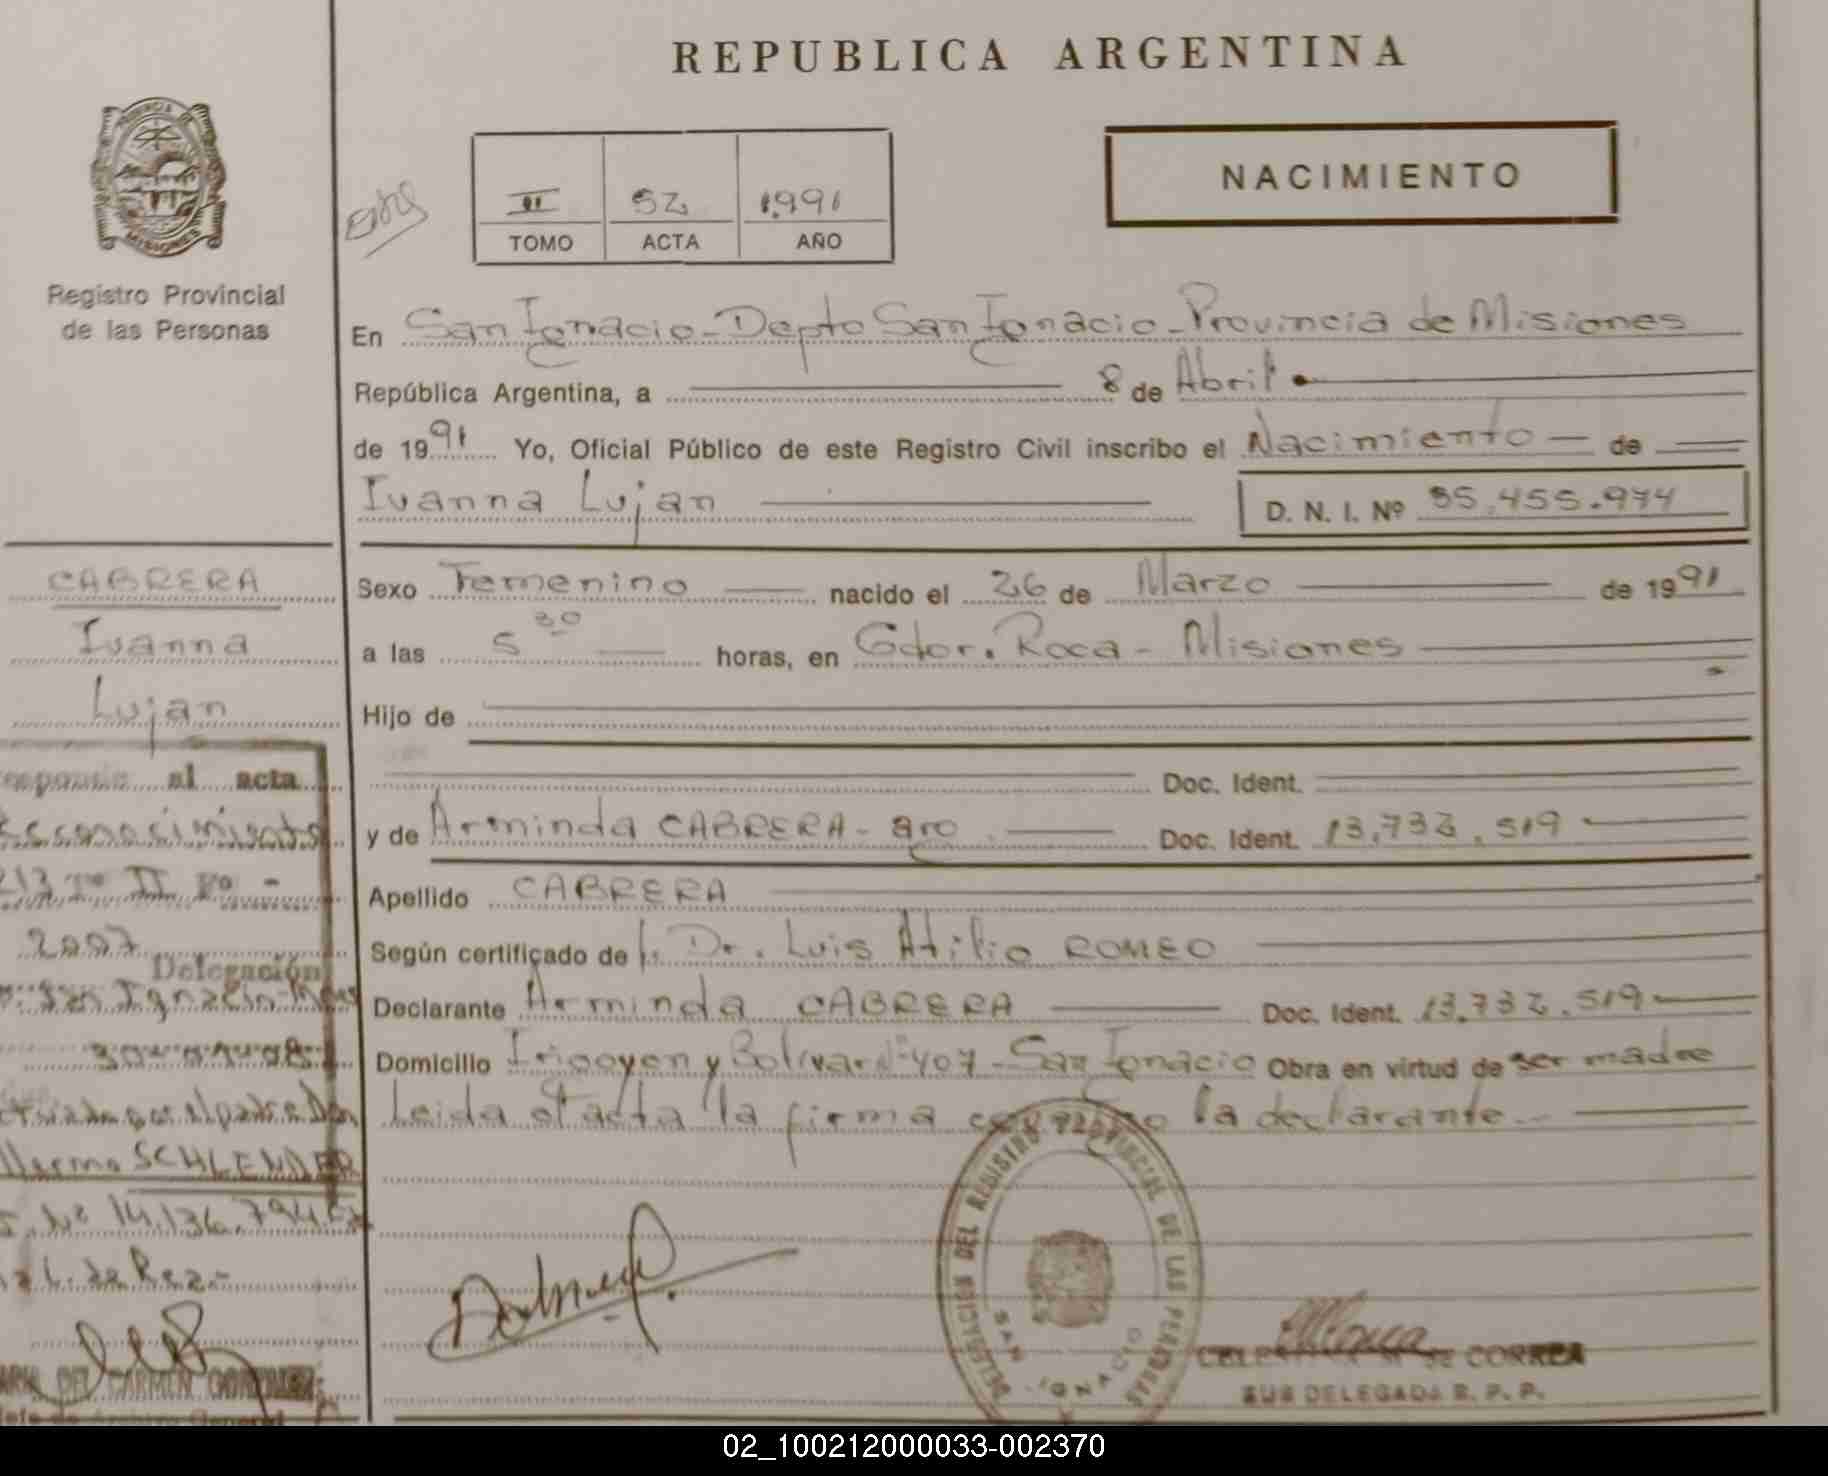 REPUBLICA ARGENTINA
PROVINCIA DE
MISIONES
Registro Provincial
de las Personas
II 52 1.991
TOMO ACTA AÑO
NACIMIENTO
En San Ignacio - Depto San Ignacio - Provincia de Misiones
República Argentina, a 8 de Abril
de 1991 Yo, Oficial Público de este Registro Civil inscribo el Nacimiento de
Ivanna Lujan
D. N. I. Nº 35.455.974
CABRERA
Ivanna
Lujan
Sexo Femenino nacido el 26 de Marzo de 1991
a las 5 30 horas, en Gdor. Roca - Misiones
Hijo de
Doc. Ident.
y de Arminda CABRERA - arg. Doc. Ident. 13.732.519
Apellido CABRERA
Según certificado de l. Dr. Luis Atilio ROMEO
Declarante Arminda CABRERA Doc. Ident. 13.732.519
Domicilio Irigoyen y Bolivar Nº 407 - San Ignacio Obra en virtud de ser madre
Leida el acta la firma conmigo la declarante.-
al acta
213 Tº II Fº -
2007
Delegación
San Ignacio
30-01-08
SCHLENDER
Nº 14.136.794
DEL CARMEN GONZALEZ
Jefe de Archivo General
DELEGACIÓN DEL REGISTRO PROVINCIAL DE LAS PERSONAS
SAN IGNACIO
DE CORREA
SUB DELEGADA R. P. P.
02_100212000033-002370